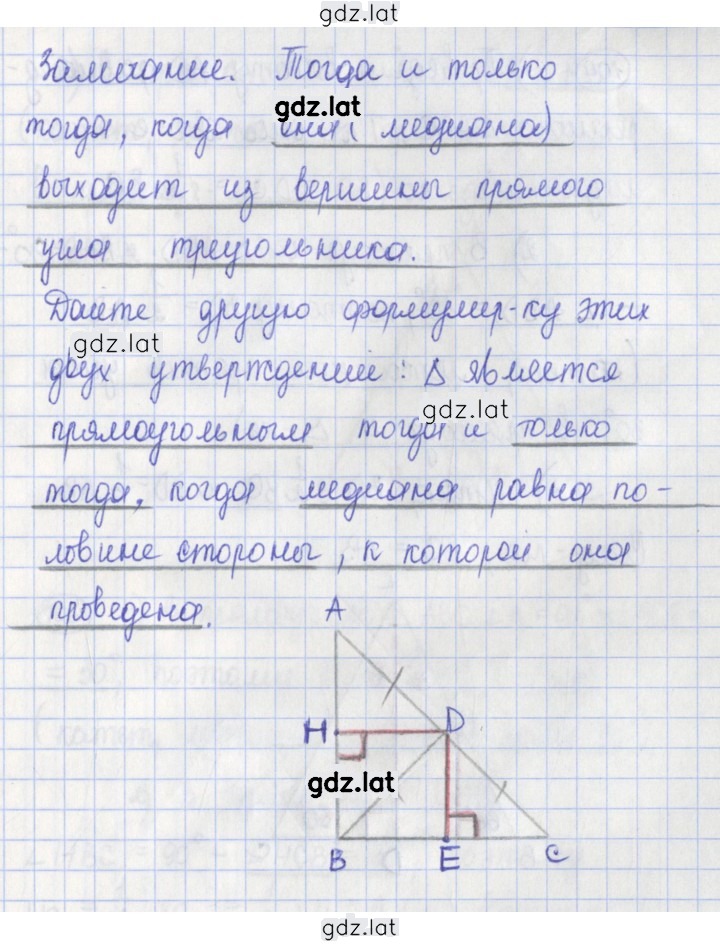 gdz.lat
Замечание. Тогда и только
gdz.lat
тогда, когда она (медиана)
выходит из вершины прямого
угла треугольника.
Дайте другую формулир-ку этих
gdz.lat
двух утверждений: Δ является
gdz.lat
прямоугольным тогда и только
тогда, когда медиана равна по-
ловине стороны, к которой она
проведена.
A
H D
gdz.lat
B E C
gdz.lat